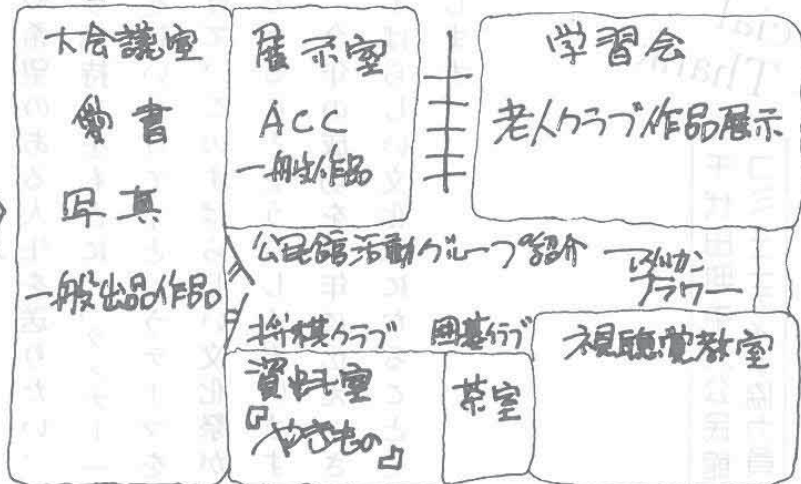 大会議室
愛書
写真
一般出品作品
展示室
ACC
一般出作品
学習会
老人クラブ作品展示
公民館活動グループ紹介
フラワー
将棋クラブ 囲碁クラブ
資料室
『やきもの』
茶室
視聴覚教室